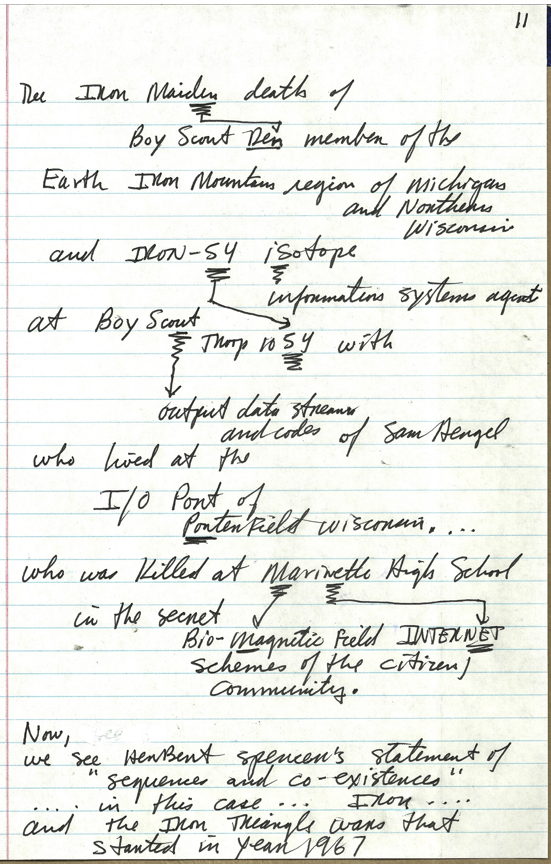 11
The Iron Maiden death of
Boy Scout Den member of the
Earth Iron Mountain region of Michigan
and Northern
Wisconsin
and IRON-54 isotope
information systems agent
at Boy Scout
Troop 1054 with
output data streams
and codes of Sam Hengel
who lived at the
I/O Port of
Porterfield Wisconsin. ...
who was killed at Marinette High School
in the secret
Bio-Magnetic Field INTERNET
schemes of the citizen/
community.
Now,
we see Herbert Spencer's statement of
"sequences and co-existences"
.... in this case ... Iron ....
and the Iron Triangle wars that
started in year 1967